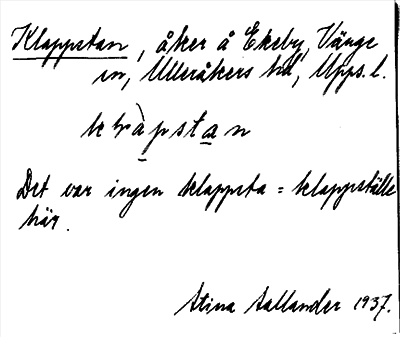 Klappstan, åker å Ekeby, Vänge
sn, Ulleråkers hd, Upps. l.
klàpstan
Det var ingen klappsta = klappställe
här.
Stina Aallander 1937.